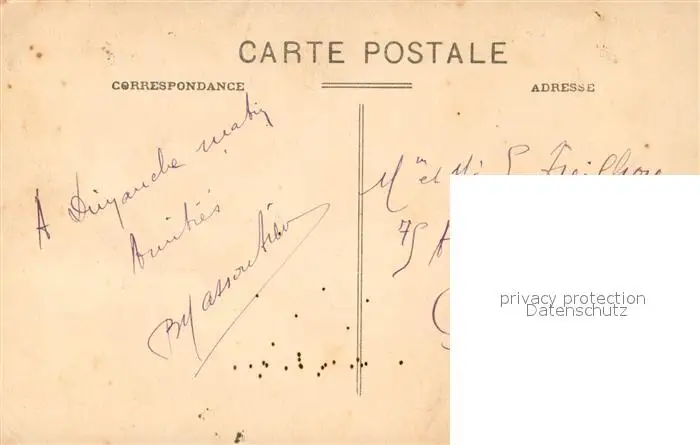 CARTE POSTALE
CORRESPONDANCE
ADRESSE
A Dimanche matin
Amitiés
Mr et Me
75 A
privacy protection
Datenschutz